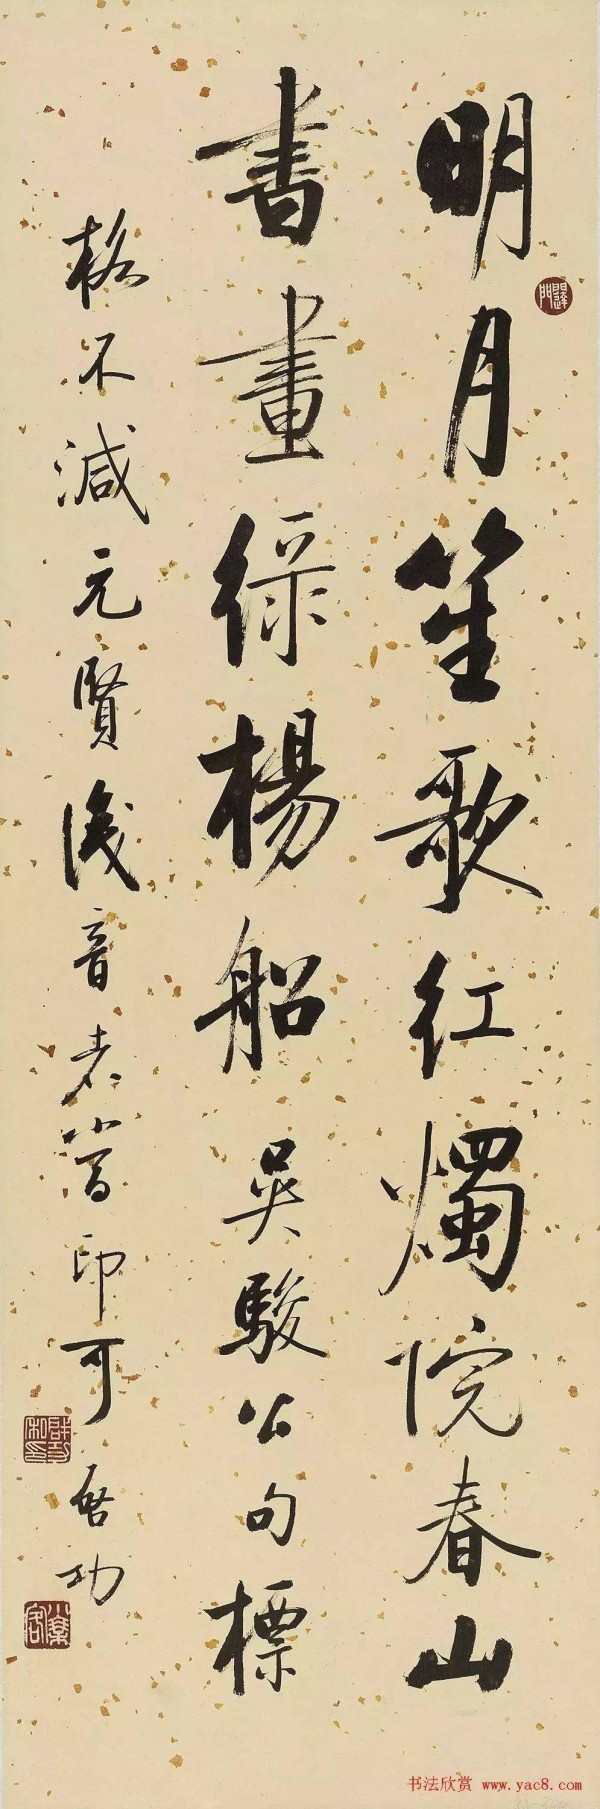 明月笙歌红燭院春山
書畫緑楊船吳駿公句標
格不减元賢浅音老嘗印可啓功
書法欣赏 www.yac8.com